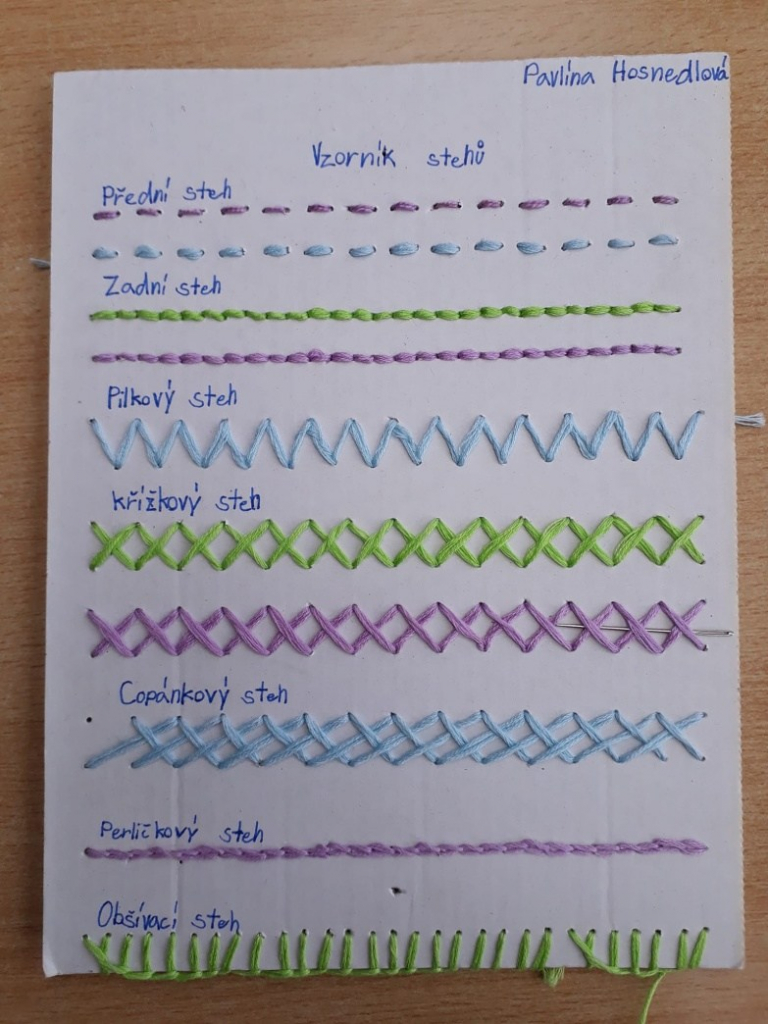 Pavlína Hosnedlová
Vzorník stehů
Přední steh
Zadní steh
Pilkový steh
křížkový steh
Copánkový steh
Perličkový steh
Obšívací steh